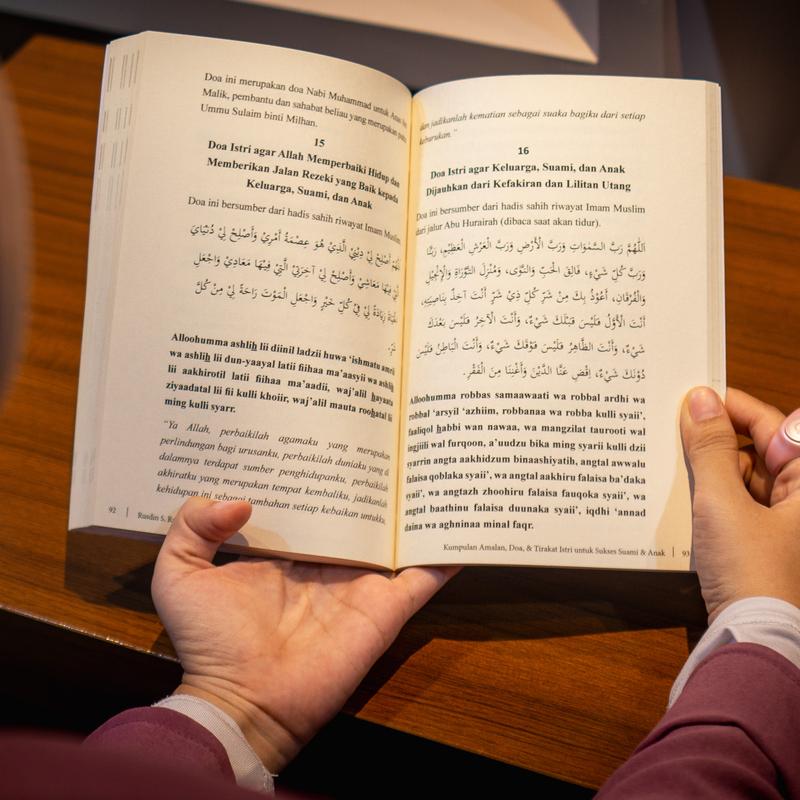 Doa ini merupakan doa Nabi Muhammad untuk Anas
Malik, pembantu dan sahabat beliau yang merupakan
Ummu Sulaim binti Milhan.
15
Doa Istri agar Allah Memperbaiki Hidup dan
Memberikan Jalan Rezeki yang Baik kepada
Keluarga, Suami, dan Anak
Doa ini bersumber dari hadis sahih riwayat Imam Muslim
أَصْلِحْ لِيْ دِيْنِيْ الَّذِيْ هُوَ عِصْمَةُ أَمْرِيْ وَأَصْلِحْ لِيْ دُنْيَايَ
فِيْهَا مَعَاشِيْ وَأَصْلِحْ لِيْ آخِرَتِيْ الَّتِيْ فِيْهَا مَعَادِيْ وَاجْعَلِ
زِيَادَةً لِيْ فِيْ كُلِّ خَيْرٍ وَاجْعَلِ الْمَوْتَ رَاحَةً لِيْ مِنْ كُلِّ
شَرٍّ.
Alloohumma ashlih lii diinil ladzii huwa 'ishmatu amrii
wa ashlih lii dun-yaayal latii fiihaa ma'aasyii wa ashlih
lii aakhirotil latii fiihaa ma'aadii, waj'alil hayaata
ziyaadatal lii fii kulli khoiir, waj'alil mauta roohatal lii
ming kulli syarr.
"Ya Allah, perbaikilah agamaku yang merupakan
perlindungan bagi urusanku, perbaikilah duniaku yang di
dalamnya terdapat sumber penghidupanku, perbaikilah
akhiratku yang merupakan tempat kembaliku, jadikanlah
kehidupan ini sebagai tambahan setiap kebaikan untukku,
92 | Rusdin S.
dan jadikanlah kematian sebagai suaka bagiku dari setiap
keburukan."
16
Doa Istri agar Keluarga, Suami, dan Anak
Dijauhkan dari Kefakiran dan Lilitan Utang
Doa ini bersumber dari hadis sahih riwayat Imam Muslim
dari jalur Abu Hurairah (dibaca saat akan tidur).
اَللّٰهُمَّ رَبَّ السَّمَوَاتِ وَرَبَّ الْأَرْضِ وَرَبَّ الْعَرْشِ الْعَظِيْمِ، رَبَّنَا
وَرَبَّ كُلِّ شَيْءٍ، فَالِقَ الْحَبِّ وَالنَّوَى، وَمُنْزِلَ التَّوْرَاةِ وَالْإِنْجِيْلِ
وَالْفُرْقَانِ، أَعُوْذُ بِكَ مِنْ شَرِّ كُلِّ ذِيْ شَرٍّ أَنْتَ آخِذٌ بِنَاصِيَتِهِ،
أَنْتَ الْأَوَّلُ فَلَيْسَ قَبْلَكَ شَيْءٌ، وَأَنْتَ الْآخِرُ فَلَيْسَ بَعْدَكَ
شَيْءٌ، وَأَنْتَ الظَّاهِرُ فَلَيْسَ فَوْقَكَ شَيْءٌ، وَأَنْتَ الْبَاطِنُ فَلَيْسَ
دُوْنَكَ شَيْءٌ، اِقْضِ عَنَّا الدَّيْنَ وَأَغْنِنَا مِنَ الْفَقْرِ.
Alloohumma robbas samaawaati wa robbal ardhi wa
robbal 'arsyil 'azhiim, robbanaa wa robba kulli syaii',
faaliqol habbi wan nawaa, wa mangzilat taurooti wal
ingjiili wal furqoon, a'uudzu bika ming syarii kulli dzii
syarrin angta aakhidzum binaashiyatih, angtal awwalu
falaisa qoblaka syaii', wa angtal aakhiru falaisa ba'daka
syaii', wa angtazh zhoohiru falaisa fauqoka syaii', wa
angtal baathinu falaisa duunaka syaii', iqdhi 'annad
daina wa aghninaa minal faqr.
Kumpulan Amalan, Doa, & Tirakat Istri untuk Sukses Suami & Anak | 93